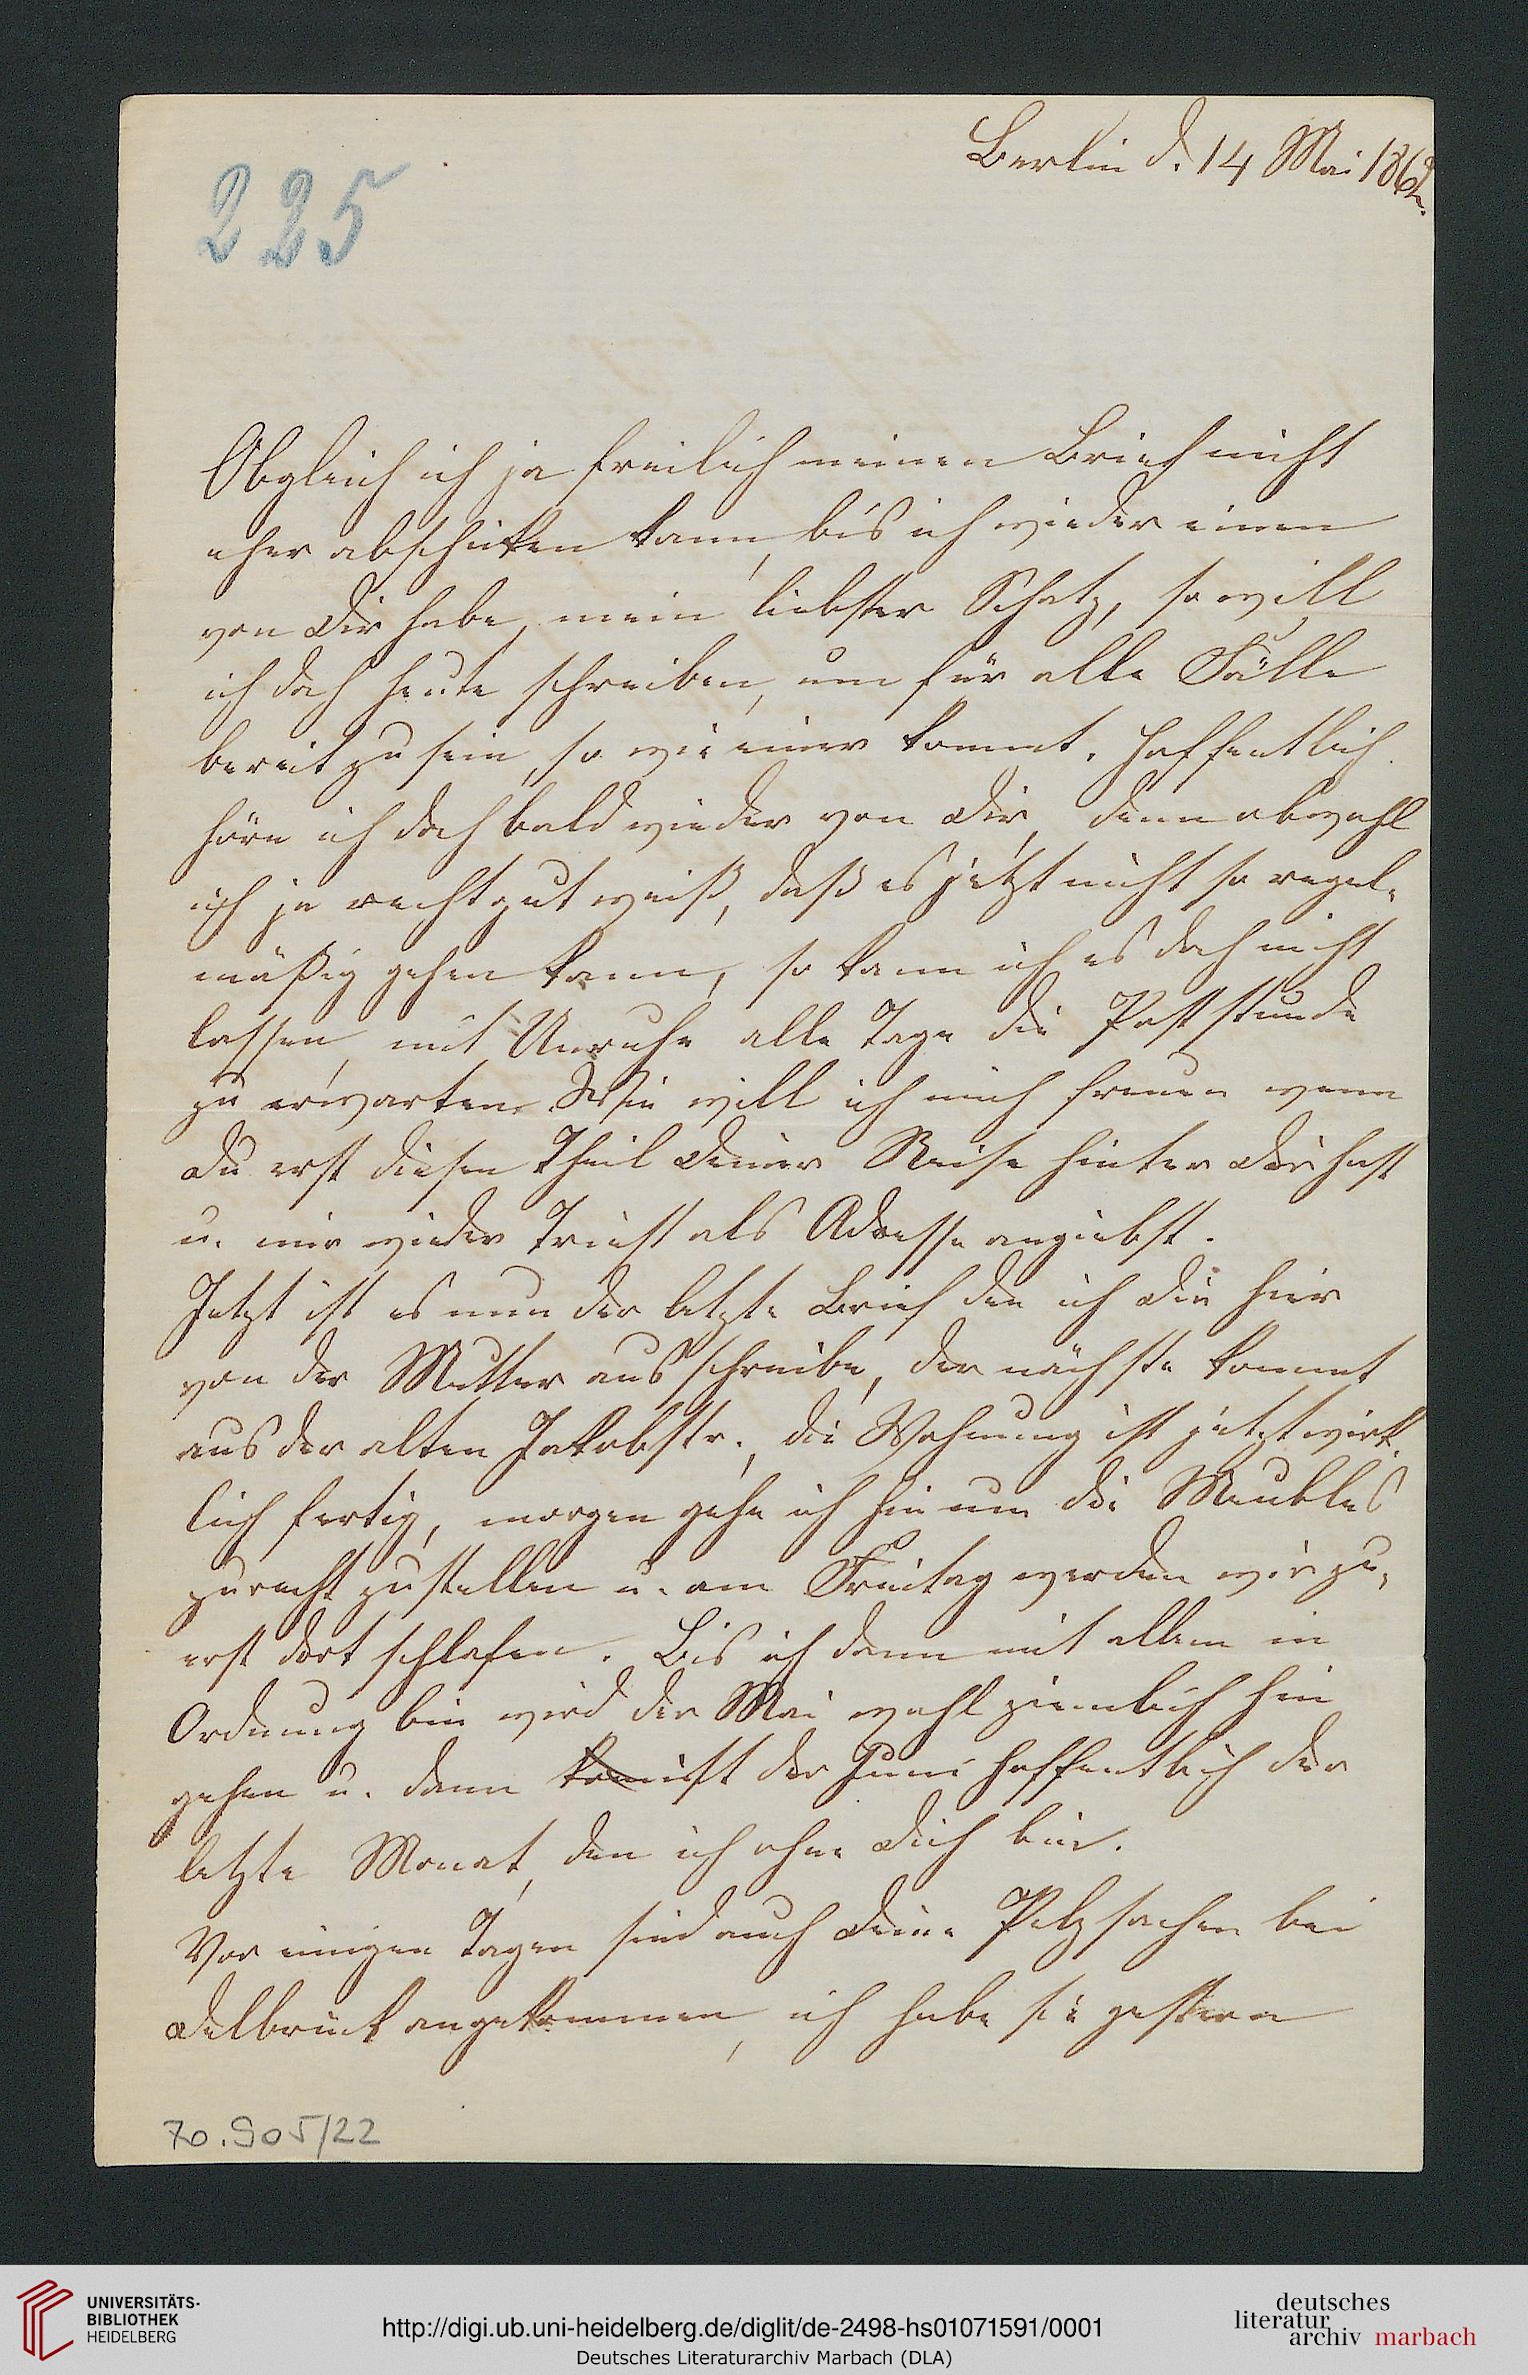 Berlin d. 14 Mai 1862.
225
Obgleich ich ja freilich meinen Brief nicht
eher abschicken kann, bis ich wieder einen
von Dir habe, mein liebster Schatz, so will
ich doch heute schreiben, um für alle Fälle
bereit zu sein, so wie einer kommt. Hoffentlich
höre ich doch bald wieder von Dir, denn obwohl
ich ja recht gut weiß, daß es jetzt nicht so regel-
mäßig gehen kann, so kann ich es doch nicht
lassen, mit Unruhe alle Tage die Poststunde
zu erwarten. Wie will ich mich freuen wenn
Du erst diesen Theil Deiner Reise hinter Dir hast
u. mir wieder Triest als Adresse angiebst.
Jetzt ist es nun der letzte Brief den ich Dir hier
von der Mutter aus schreibe, der nächste kommt
aus der alten Jakobstr., die Wohnung ist jetzt wirk-
lich fertig, morgen gehe ich hin um die Meubles
zurecht zu stellen u. am Freitag werden wir zu-
erst dort schlafen. Bis ich dann mit allem in
Ordnung bin wird der Mai wohl ziemlich hin
gehen u. dann ist der Juni hoffentlich der
letzte Monat, den ich ohne Dich bin.
Vor einigen Tagen sind auch Deine Pelzsachen bei
Delbrück angekommen, ich habe sie gestern
70.905/22
UNIVERSITÄTS-
BIBLIOTHEK
HEIDELBERG
http://digi.ub.uni-heidelberg.de/diglit/de-2498-hs01071591/0001
Deutsches Literaturarchiv Marbach (DLA)
deutsches
literatur
archiv marbach